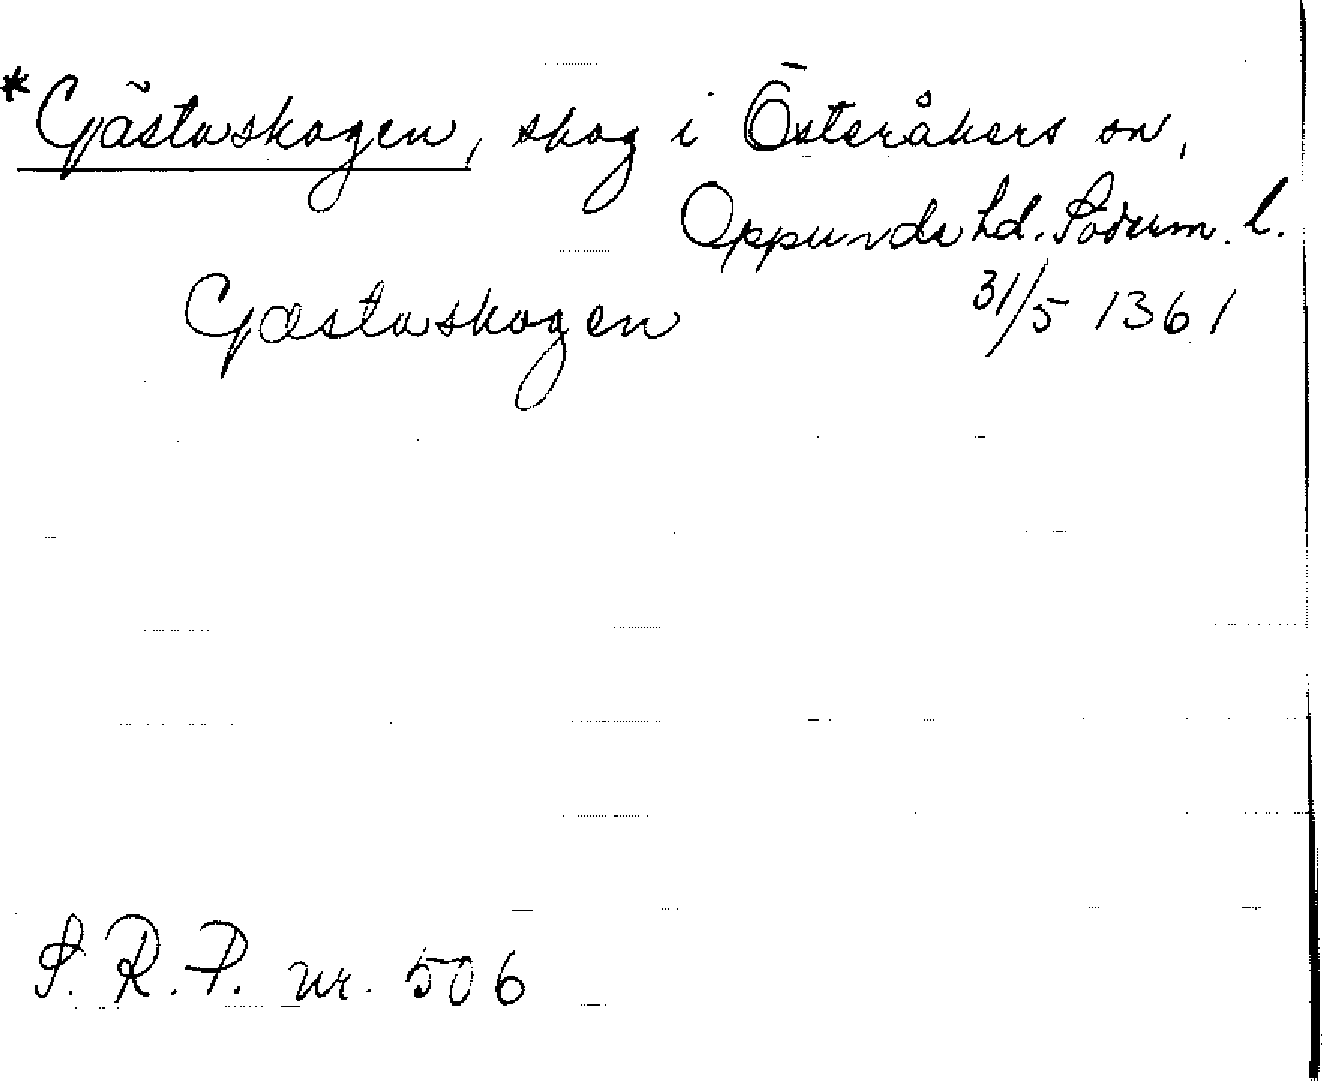 *Gästaskogen, skog i Österåkers sn,
Oppunda hd. Söderm. l.
Gæstaskogen 31/5 1361
S.R.P. nr. 506